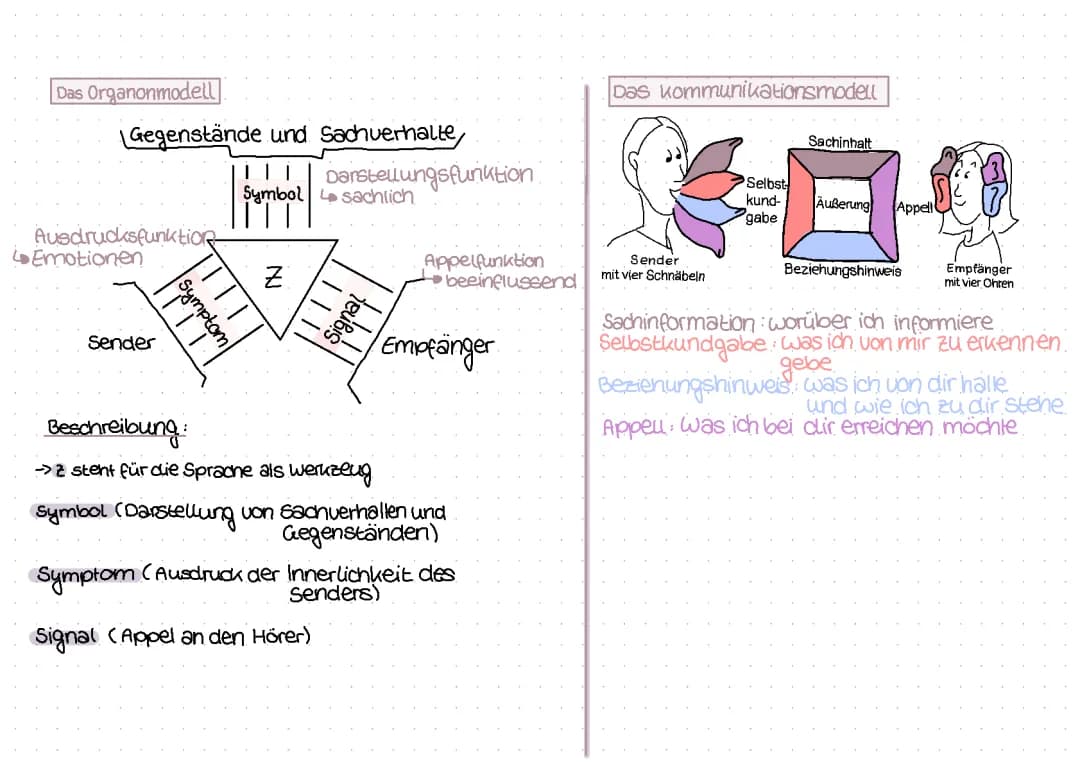 Das Organonmodell
Gegenstände und Sachverhalte
Symbol
Darstellungsfunktion
↳ sachlich
Ausdrucksfunktion
↳ Emotionen
Z
Symptom
Signal
Appelfunktion
↳ beeinflussend
Sender
Empfänger
Beschreibung:
→ Z steht für die Sprache als Werkzeug
Symbol (Darstellung von Sachverhalten und
Gegenständen)
Symptom (Ausdruck der Innerlichkeit des
Senders)
Signal (Appel an den Hörer)
Das Kommunikationsmodell
Sachinhalt
Selbst-
kund-
gabe
Äußerung
Appell
Beziehungshinweis
Sender
mit vier Schnäbeln
Empfänger
mit vier Ohren
Sachinformation: worüber ich informiere
Selbstkundgabe: was ich von mir zu erkennen
gebe
Beziehungshinweis: was ich von dir halte
und wie ich zu dir stehe
Appell: Was ich bei dir erreichen möchte